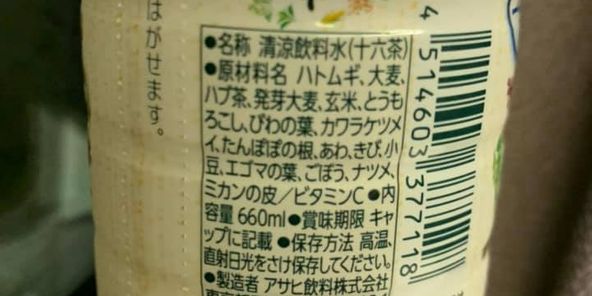 はがせます。
●名称 清涼飲料水(十六茶)
●原材料名 ハトムギ、大麦、
ハブ茶、発芽大麦、玄米、とうも
ろこし、びわの葉、カワラケツメ
イ、たんぽぽの根、あわ、きび、小
豆、エゴマの葉、ごぼう、ナツメ、
ミカンの皮/ビタミンC ●内
容量 660ml ●賞味期限 キャ
ップに記載 ●保存方法 高温、
直射日光をさけ保存してください。
●製造者 アサヒ飲料株式会社
4 514603 377118